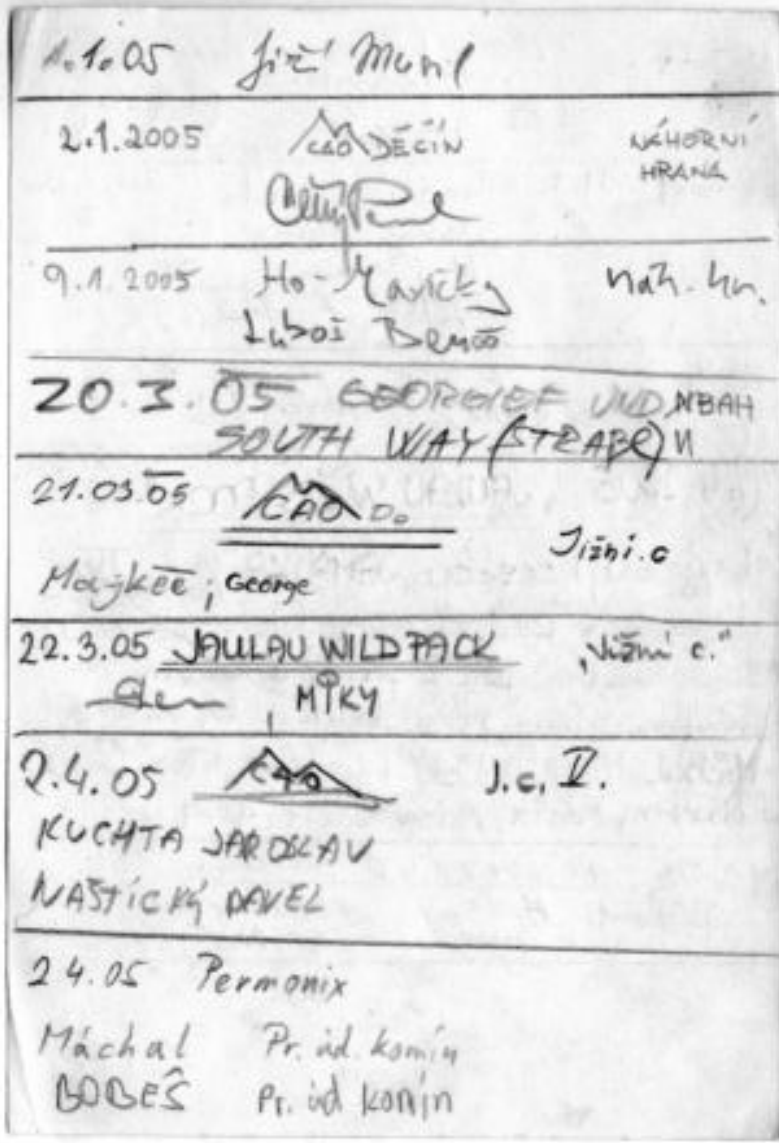 1.1.05 Jiří
2.1.2005 ČAO DĚČÍN NÁHORNÍ
HRANA
9.1.2005 Ho- náh. hr.
Luboš
20.3.05 GEORGIEF UND
SOUTH WAY
21.03.05 ČAO Dc Jižní.c
Majkeé; George
22.3.05 JAULAU WILD PACK „Jižní c."
MIKY
2.4.05 ČAO J.c. V.
KUCHTA JAROSLAV
NAŠTICKÝ PAVEL
2 4.05 Permonix
Máchal Pr. úd. komín
BOBEŠ Pr. úd komín